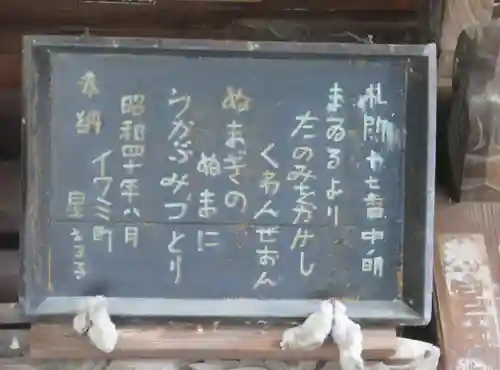 札所十七番中ノ明
まゐるより
たのみをかけし
くわんぜおん
ぬまぎの
ぬまに
うかぶみづとり
奉納
昭和四十年八月
イワミ町
星さる